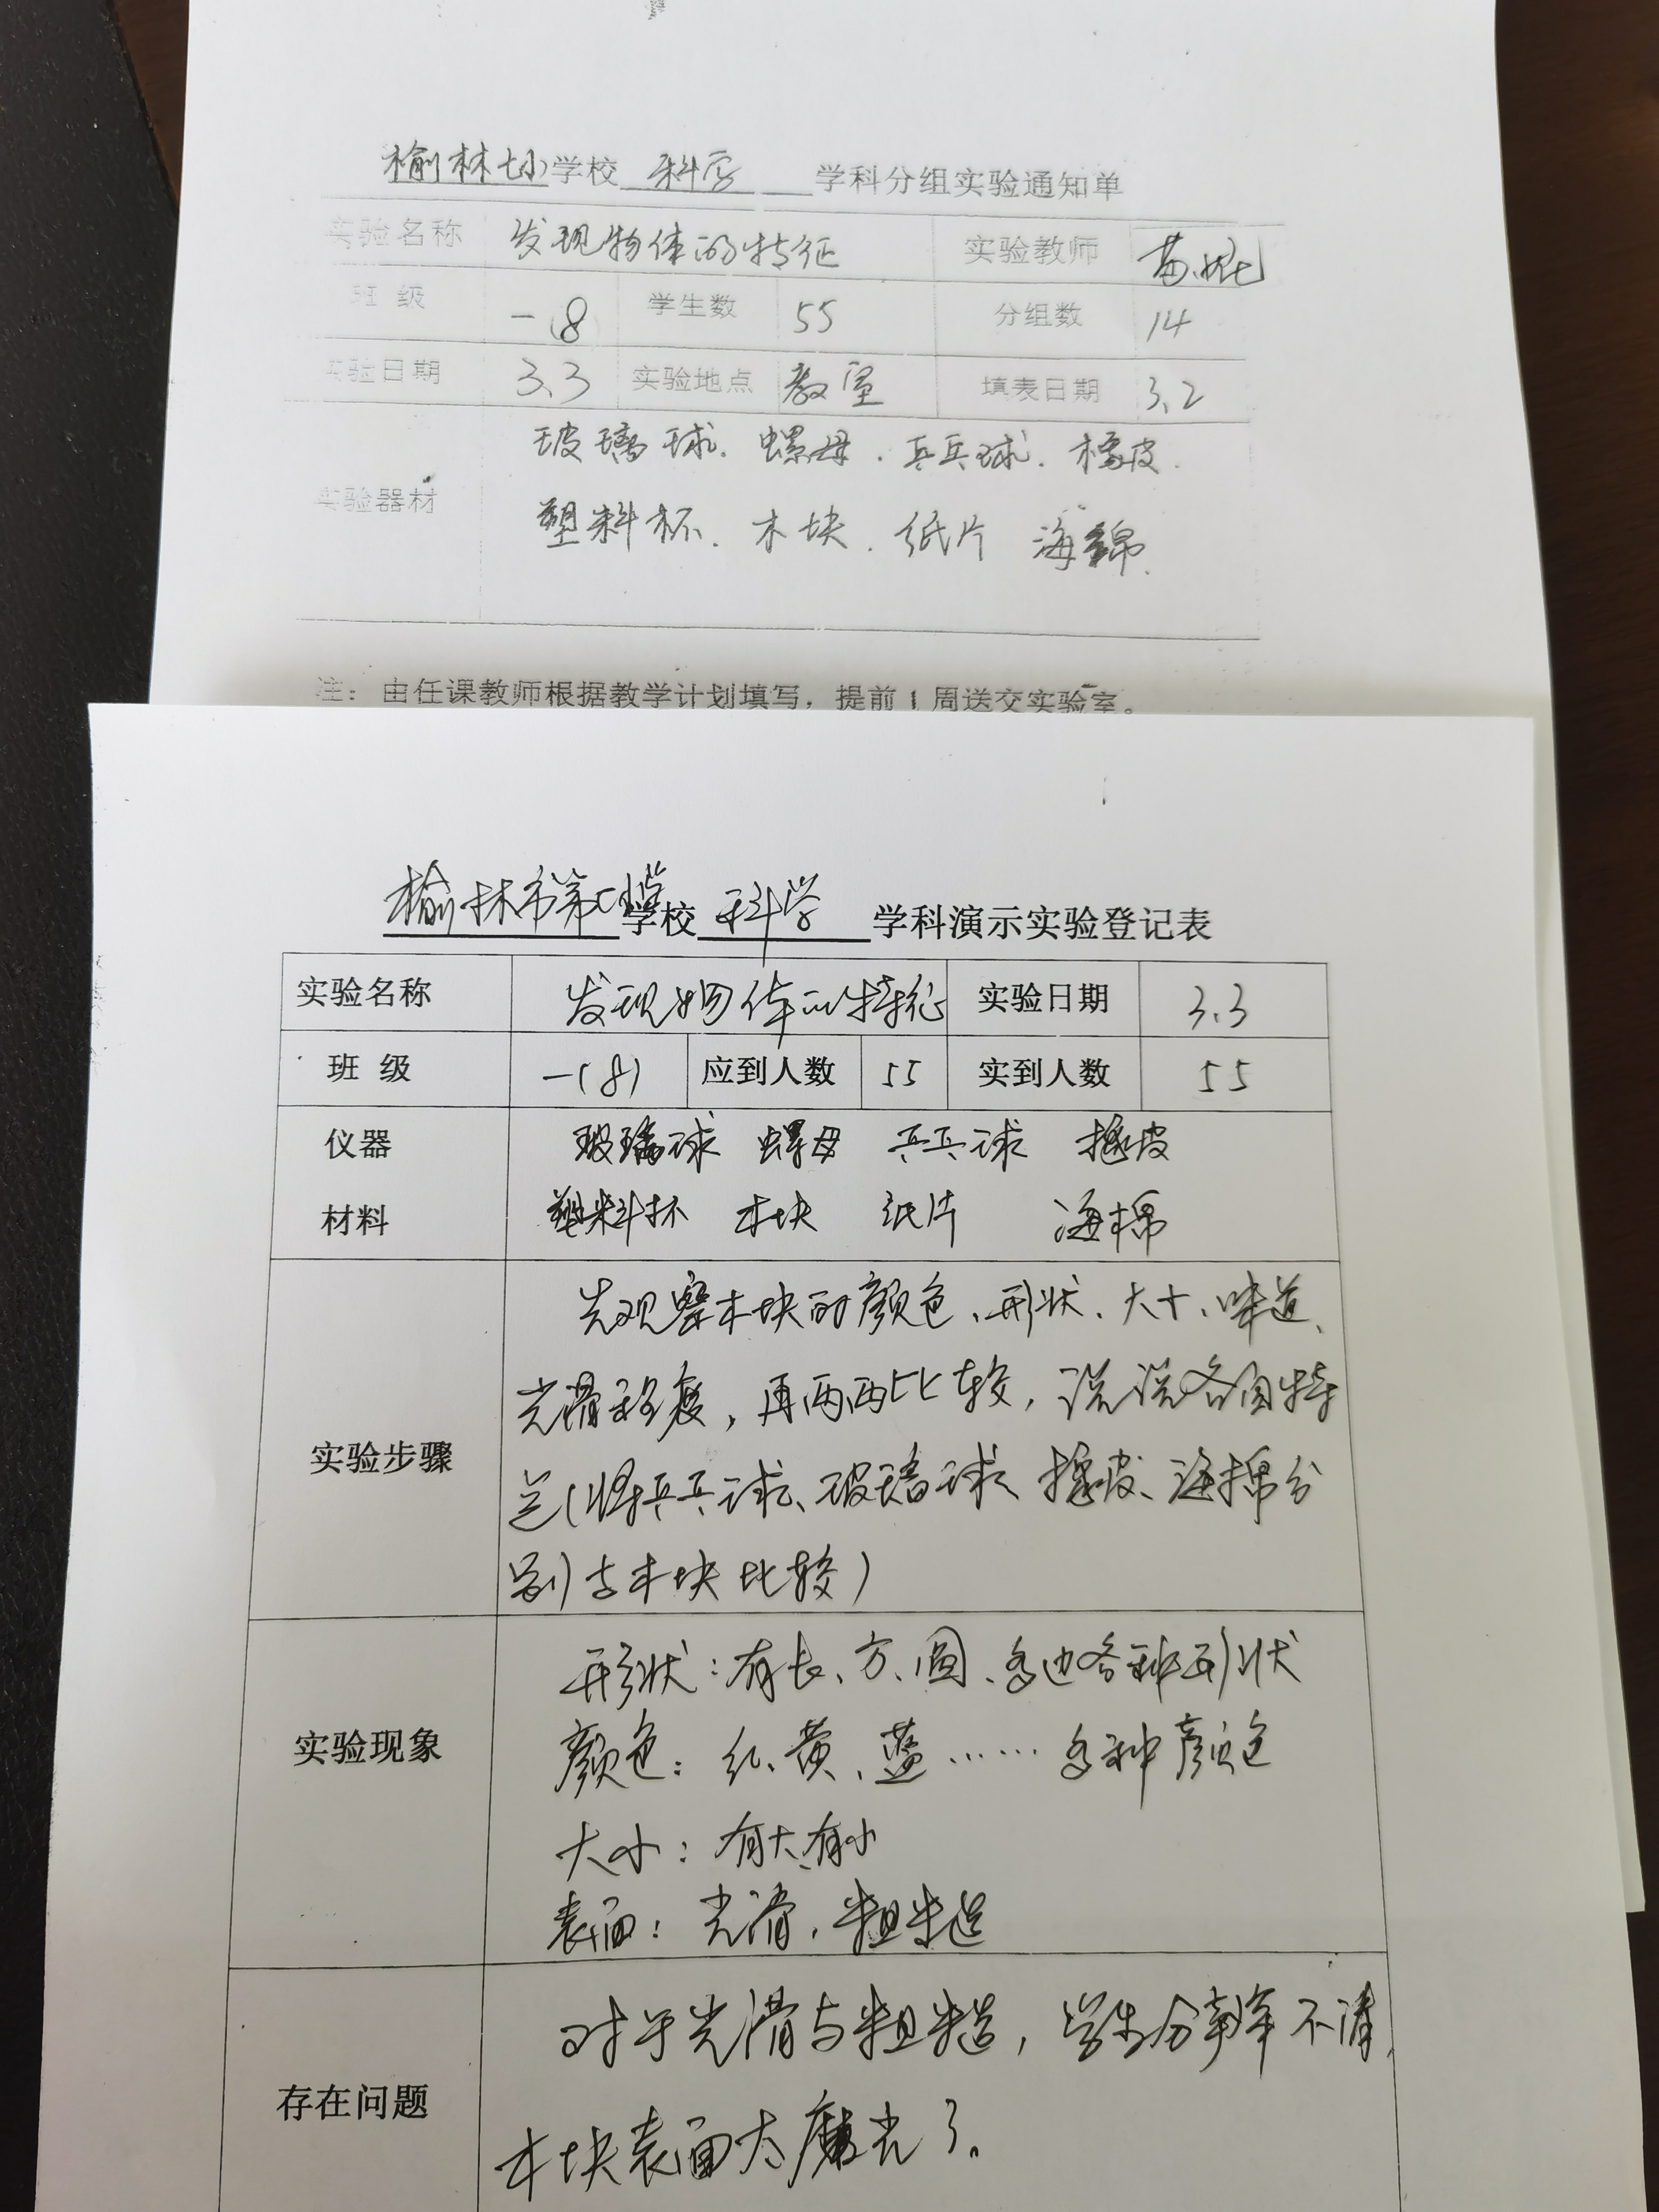 榆林七小学校 科学 学科分组实验通知单
实验名称 发现物体的特征 实验教师
班 级 一(8) 学生数 55 分组数 14
实验日期 3.3 实验地点 教室 填表日期 3.2
玻璃球. 螺母. 乒乓球. 橡皮.
实验器材
塑料杯. 木块. 纸片 海绵.
注: 由任课教师根据教学计划填写, 提前1周送交实验室。
榆林市第七小学学校 科学 学科演示实验登记表
实验名称 发现物体的特征 实验日期 3.3
班 级 一(8) 应到人数 55 实到人数 55
仪器 玻璃球 螺母 乒乓球 橡皮
材料 塑料杯 木块 纸片 海棉
先观察木块的颜色、形状、大小、味道、
光滑程度, 再两两比较, 说说各自特
实验步骤
点(将乒乓球、玻璃球、橡皮、海棉分
别与木块比较)
形状: 有长、方、圆、多边各种形状
实验现象
颜色: 红、黄、蓝…… 各种颜色
大小: 有大有小
表面: 光滑, 粗糙
对于光滑与粗糙, 学生分辨不清,
存在问题
木块表面太磨光了。